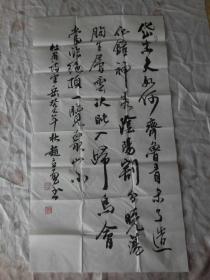 岱宗夫如何齊魯青未了造
化鍾神秀陰陽割昏曉蕩
胸生層雲決眦入歸鳥會
當凌絕頂一覽眾山小
杜甫詩望岳 年秋趙 書